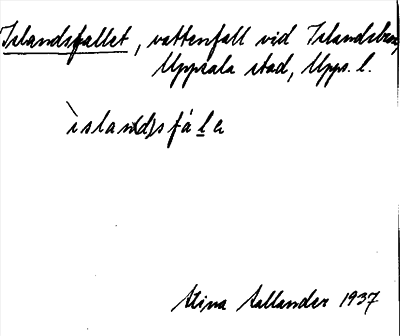 Islandsfallet, vattenfall vid Islandsbron,
Uppsala stad, Upps. l.
ìslan(d)sfále
Stina Sallander 1937